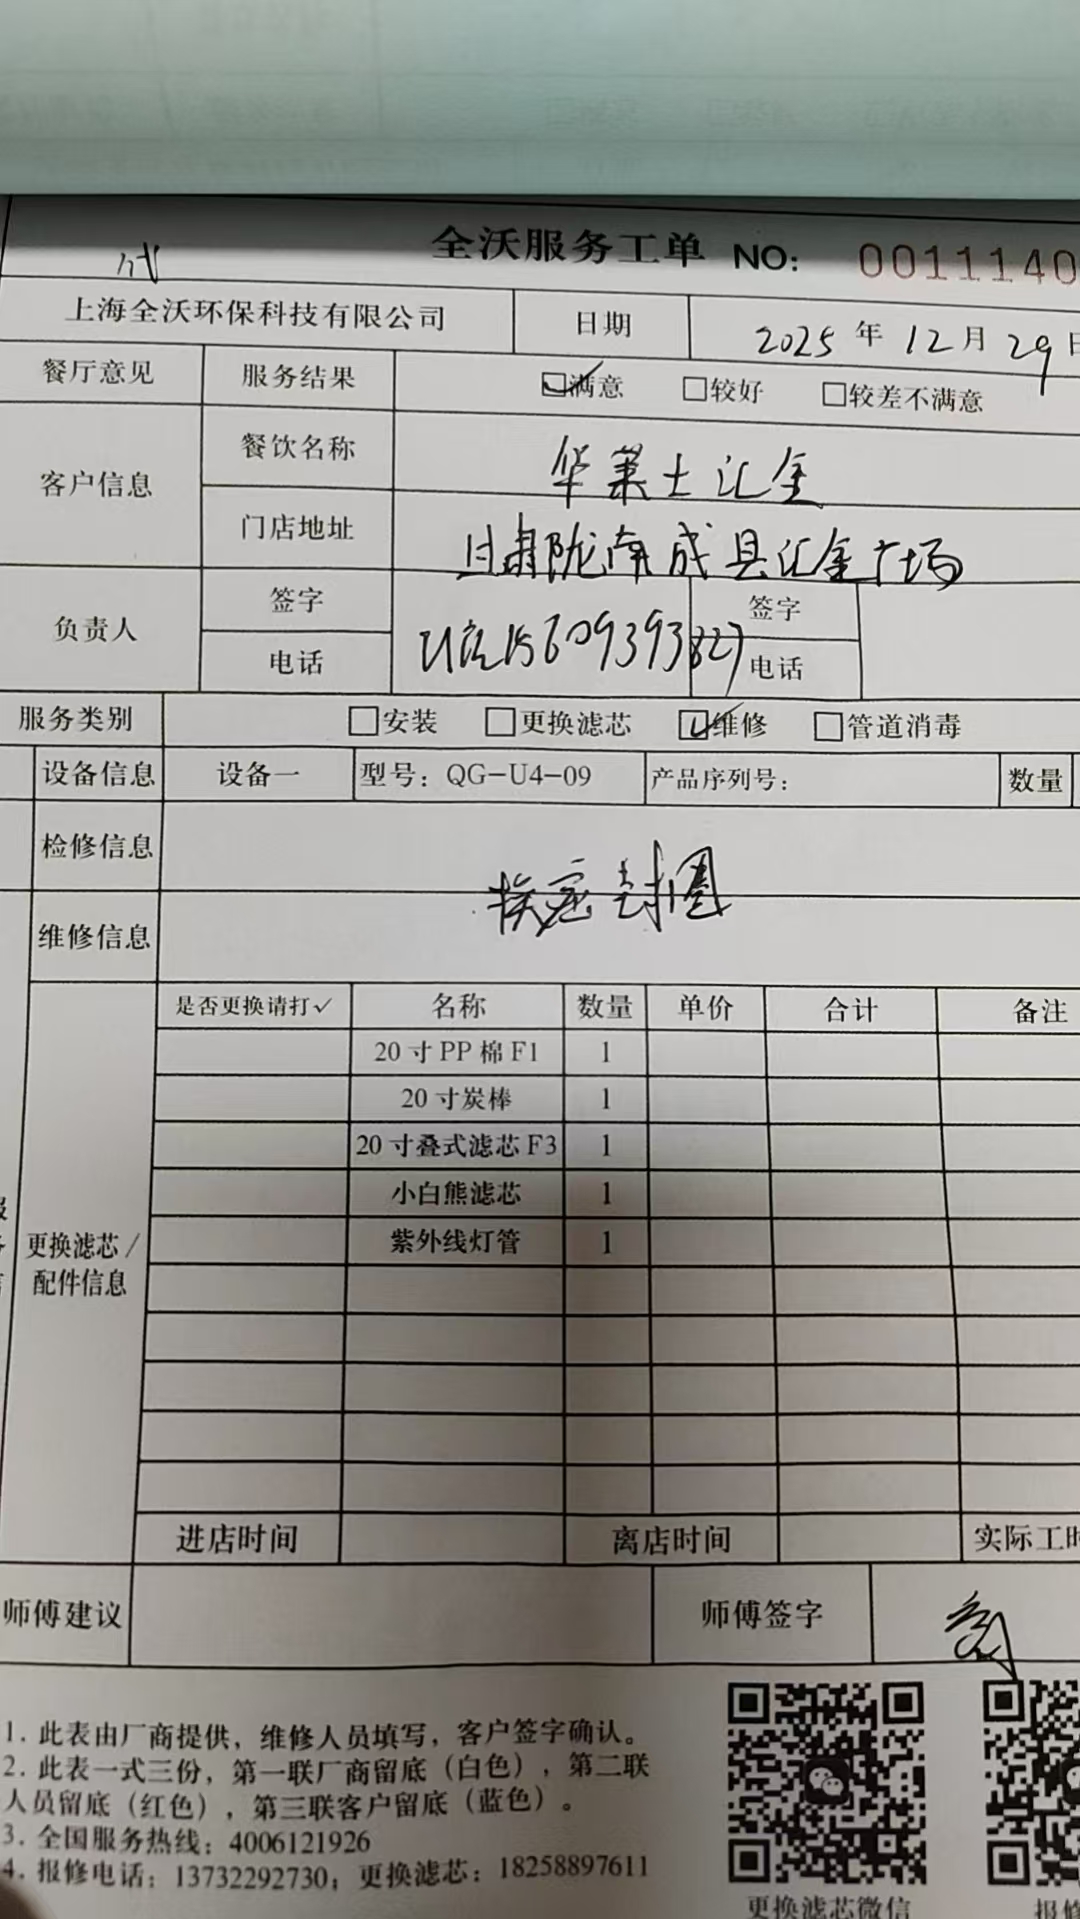 全沃服务工单 NO: 0011140
上海全沃环保科技有限公司 日期 2025年12月29日
餐厅意见 服务结果 ☑满意 □较好 □较差不满意
客户信息 餐饮名称 华莱士汇金
门店地址 甘肃陇南成县汇金广场
负责人 签字 签字
电话 15609393827 电话
服务类别 □安装 □更换滤芯 ☑维修 □管道消毒
设备信息 设备一 型号：QG-U4-09 产品序列号： 数量
检修信息
换密封圈
维修信息
是否更换请打✓ 名称 数量 单价 合计 备注
20寸PP棉F1 1
20寸炭棒 1
20寸叠式滤芯F3 1
小白熊滤芯 1
紫外线灯管 1
更换滤芯/
配件信息
进店时间 离店时间 实际工时
师傅建议 师傅签字
1. 此表由厂商提供，维修人员填写，客户签字确认。
2. 此表一式三份，第一联厂商留底（白色），第二联
人员留底（红色），第三联客户留底（蓝色）。
3. 全国服务热线：4006121926
4. 报修电话：13732292730；更换滤芯：18258897611
更换滤芯微信 报修